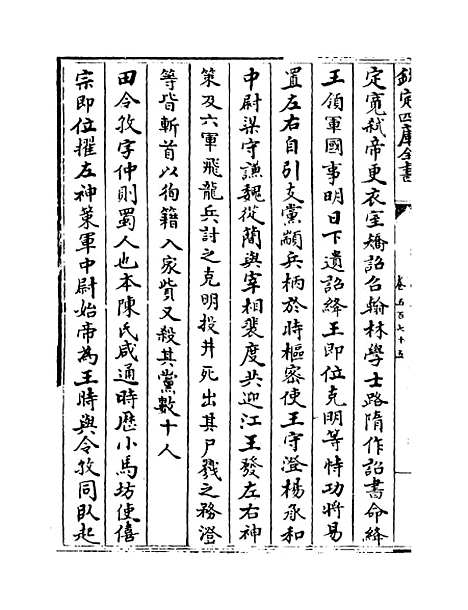 欽定四庫全書
卷五百七十五
定寛弑帝更衣室矯詔召翰林學士路隋作詔書命絳
王領軍國事明日下遺詔絳王即位克明等恃功將易
置左右自引支黨顓兵柄於時樞密使王守澄楊承和
中尉梁守謙魏從簡與宰相裴度共迎江王發左右神
策及六軍飛龍兵討之克明投井死出其尸戮之務澄
等皆斬首以徇籍入家貲又殺其黨數十人
田令孜字仲則蜀人也本陳氏咸通時歴小馬坊使僖
宗即位擢左神策軍中尉始帝為王時與令孜同臥起